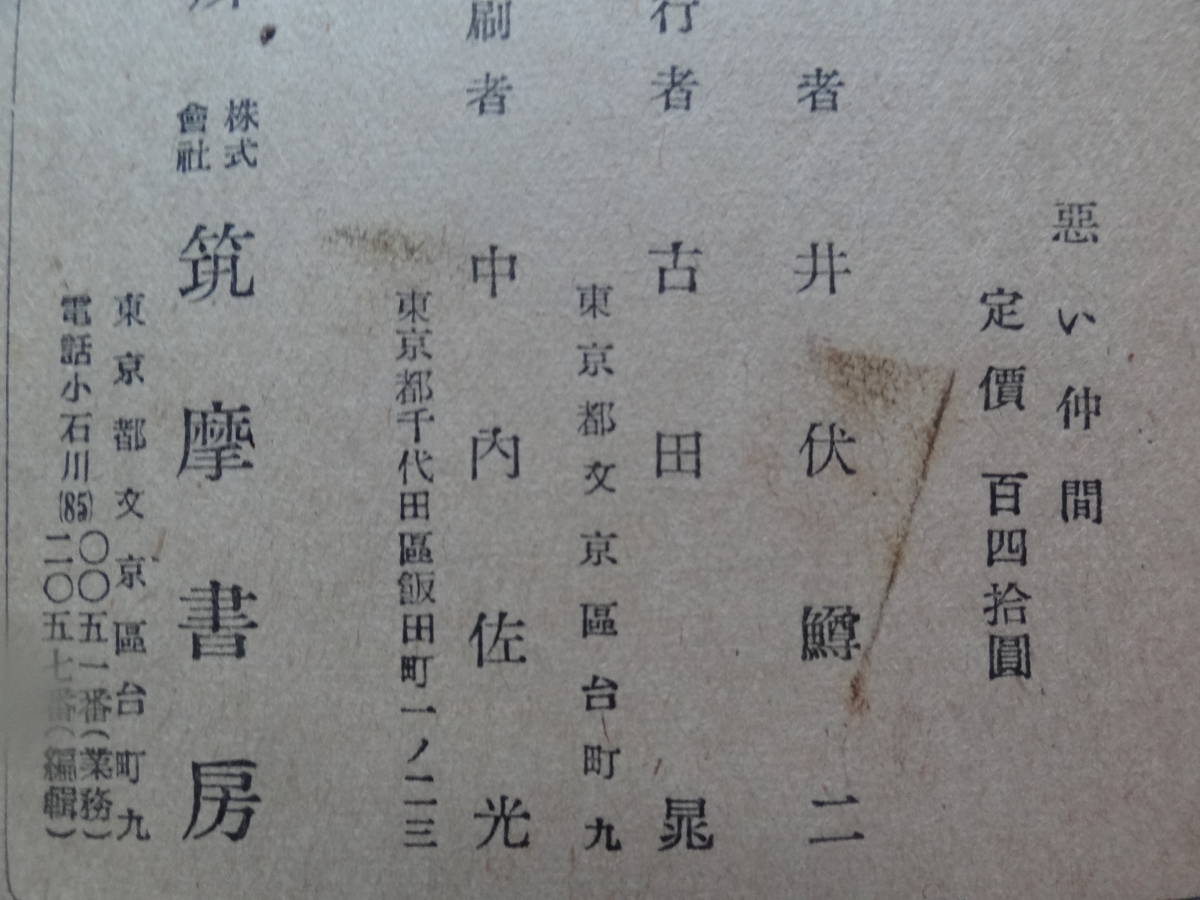 惡い仲間
定價 百四拾圓
者 井伏鱒二
行者 古田晁
東京都文京區台町九
刷者 中內佐光
東京都千代田區飯田町一ノ二三
株式會社 筑摩書房
東京都文京區台町九
電話小石川(85)〇〇五一番(業務)
二〇五七番(編輯)